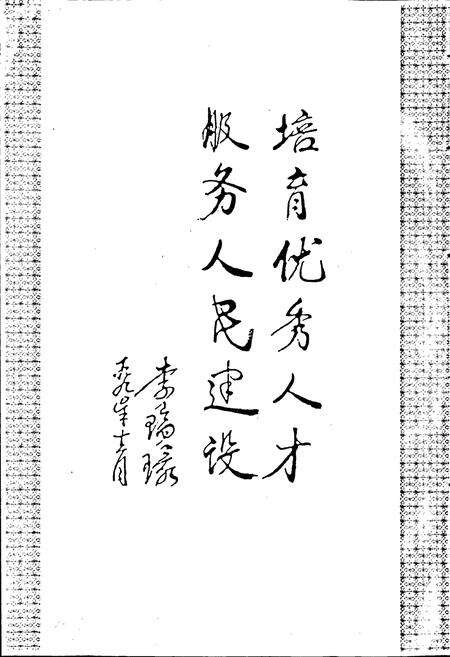 培育优秀人才
服务人民建设
李瑞环